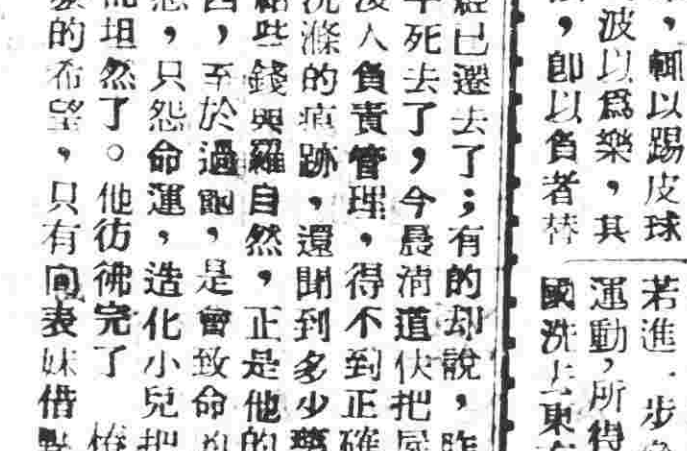 ，輒以踢皮球
波以爲樂，其
，卽以負者替
若進一步
運動，所得
國洗上東
已遷去了；有的却說，昨
死去了，今晨淸道伕把
人負責管理，得不到正確
滌的痕跡，還聞到多少
些錢與羅自然，正是他的
，至於過飽，是會致命
，只怨命運，造化小兒把
坦然了。他彷彿完了
的希望，只有向表妹借